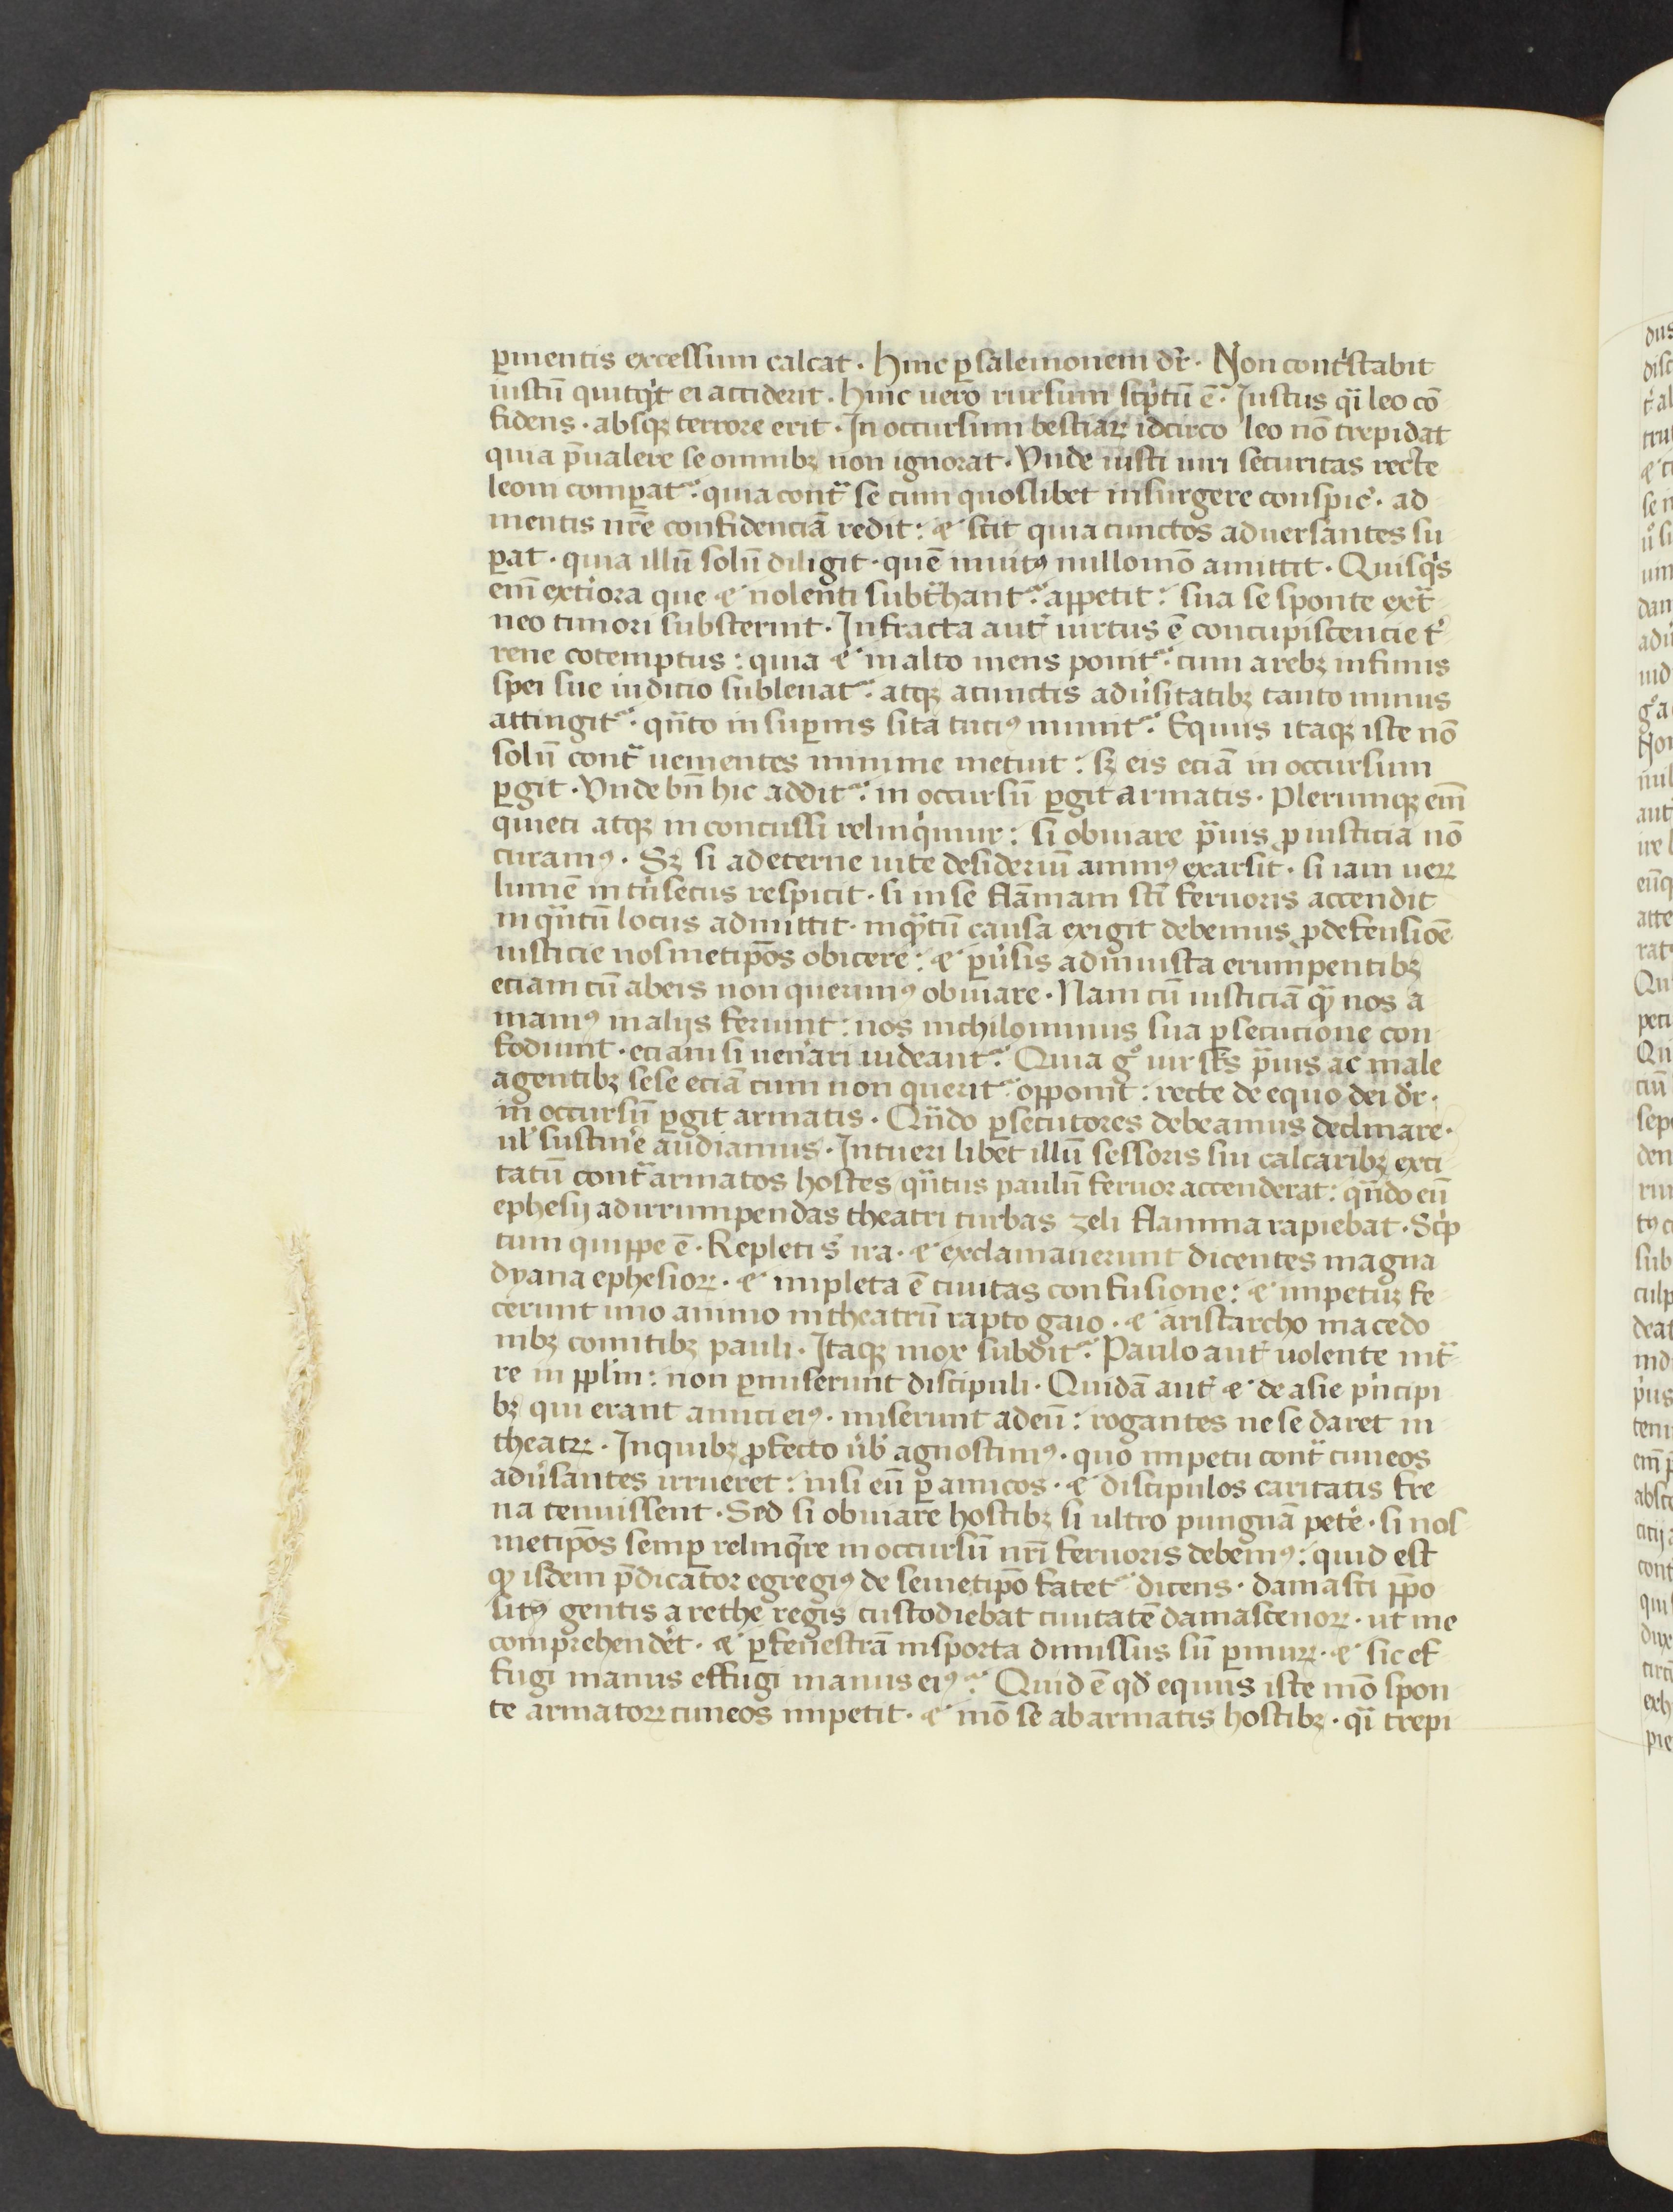 ꝑmentis excessum calcat · hinc ꝑ salemonem dr̄ · Non contͥstabit
iustū quitqͥt ei acciderit · hinc uero rursum scͥptū ē · Iustus qͣi leo cō
fidens · absqꝫ terrore erit · In occursum bestiaꝝ idcirco leo nō trepidat
quia p̄ualere se omnibꝫ non ignorat · Vnde iusti uiri securitas recte
leoni comꝑat᷑ · quia contͣ se cum quoslibet insurgere conspic̉ · ad
mentis nr̄e confidenciā redit : ⁊ scit quia cunctos aduersantes su
ꝑat · quia illū solū diligit · quē inuitꝰ nullomō amittit · Quisqͥs
em̄ exteͥora que ⁊ nolenti subtͣhant᷑ appetit : sua se sponte extͣ
neo timori substernit · Infracta aut̉ uirtus ē concupiscencie t̉
rene cotemptus : quia ⁊ in alto mens ponit᷑ · cum a rebꝫ infimis
spei sue iudicio subleuat᷑ · atqꝫ a cunctis adủsitatibꝫ tanto minus
attingit᷑ · qͣnto in suꝑnis sita tuciꝰ munit᷑ · Equus itaqꝫ iste nō
solū contͣ uementes minime metuit : sꝫ eis eciā in occursum
ꝑgit · Vnde bn̄ hic addit᷑ · in occursū ꝑgit armatis · Plerumqꝫ em̄
quieti atqꝫ in concussi relinqͥmur : si obuiare pͣuis ꝓ iusticia nō
curamꝰ · Sꝫ si ad eterne uite desideriū animꝰ exarsit · si iam ueꝝ
lumē intͥsecus respicit · si in se flāmam scī feruoris accendit
in qͣntū locus admittit · in qͣntū causa exigit debemus ꝓ defensiōe
iusticie nosmetipōs obicere : ⁊ ꝑủsis ad iniusta erumpentibꝫ
eciam cū ab eis non querimꝰ obuiare · Nam cū iusticiā qͣ nos a
mamꝰ in alijs feriunt : nos nichilominus sua ꝑsecucione con
fodiunt · eciam si uen̉ari uideant᷑ · Quia gͦ uir scͣs pͣuis ac male
agentibꝫ sese eciā cum non querit᷑ opponit : recte de equo dei dr̄ ·
in occursū ꝑgit armatis · Qͣndo ꝑsecutores debeamus declinare ·
ul̉ sustin̉e audiamus · Intueri libet illū sessoris sui calcaribꝫ exci
tatum contͣ armatos hostes qͣntus paulū feruor accenderat : qͣndo eū
ephesij ad irrumpendas theatri turbas zeli flamma rapiebat · Scͥp
tum quippe ē · Repleti s̄ ira · ⁊ exclamauerunt dicentes magna
dyana ephesioꝝ · ⁊ impleta ē ciuitas confusione : ⁊ impetuꝫ fe
cerunt uno animo in theatrū rapto gaio · ⁊ aristarcho macedo
nibꝫ comitibꝫ pauli · Itaqꝫ mox subdit᷑ · Paulo aut̉ uolente intͣ
re in pplm̄ : non ꝑmiserunt discipuli · Quidā aut̉ ⁊ de asie pͥncipi
bꝫ qui erant amici eiꝰ · miserunt ad eū : rogantes ne se daret in
theatꝝ · In quibꝫ ꝓfecto ủb̉ agnoscimꝰ · quo impetu contͣ cuneos
adủsantes irrueret : nisi eū ꝑ amicos · ⁊ discipulos caritatis fre
na tenuissent · Sed si obuiare hostibꝫ si ultro pungnā pet̉e · si nos
metipōs semꝑ relinqͥre in occursū nr̄i feruoris debemꝰ : quid est
qͦ isdem p̄dicator egregiꝰ de semetipō fatet᷑ dicens · damasci ppo
sitꝰ gentis arethe regis custodiebat ciuitatē damascenoꝝ · ut me
comprehend̉et · ⁊ ꝑ fenestrā in sporta dimissus sū ꝑ muꝝ · ⁊ sic ef
fugi manus effugi manus eiꝰ · Quid ē qd̉ equus iste mō spon
te armatoꝝ cuneos impetit · ⁊ mō se ab armatis hostibꝫ · qͣi trepi